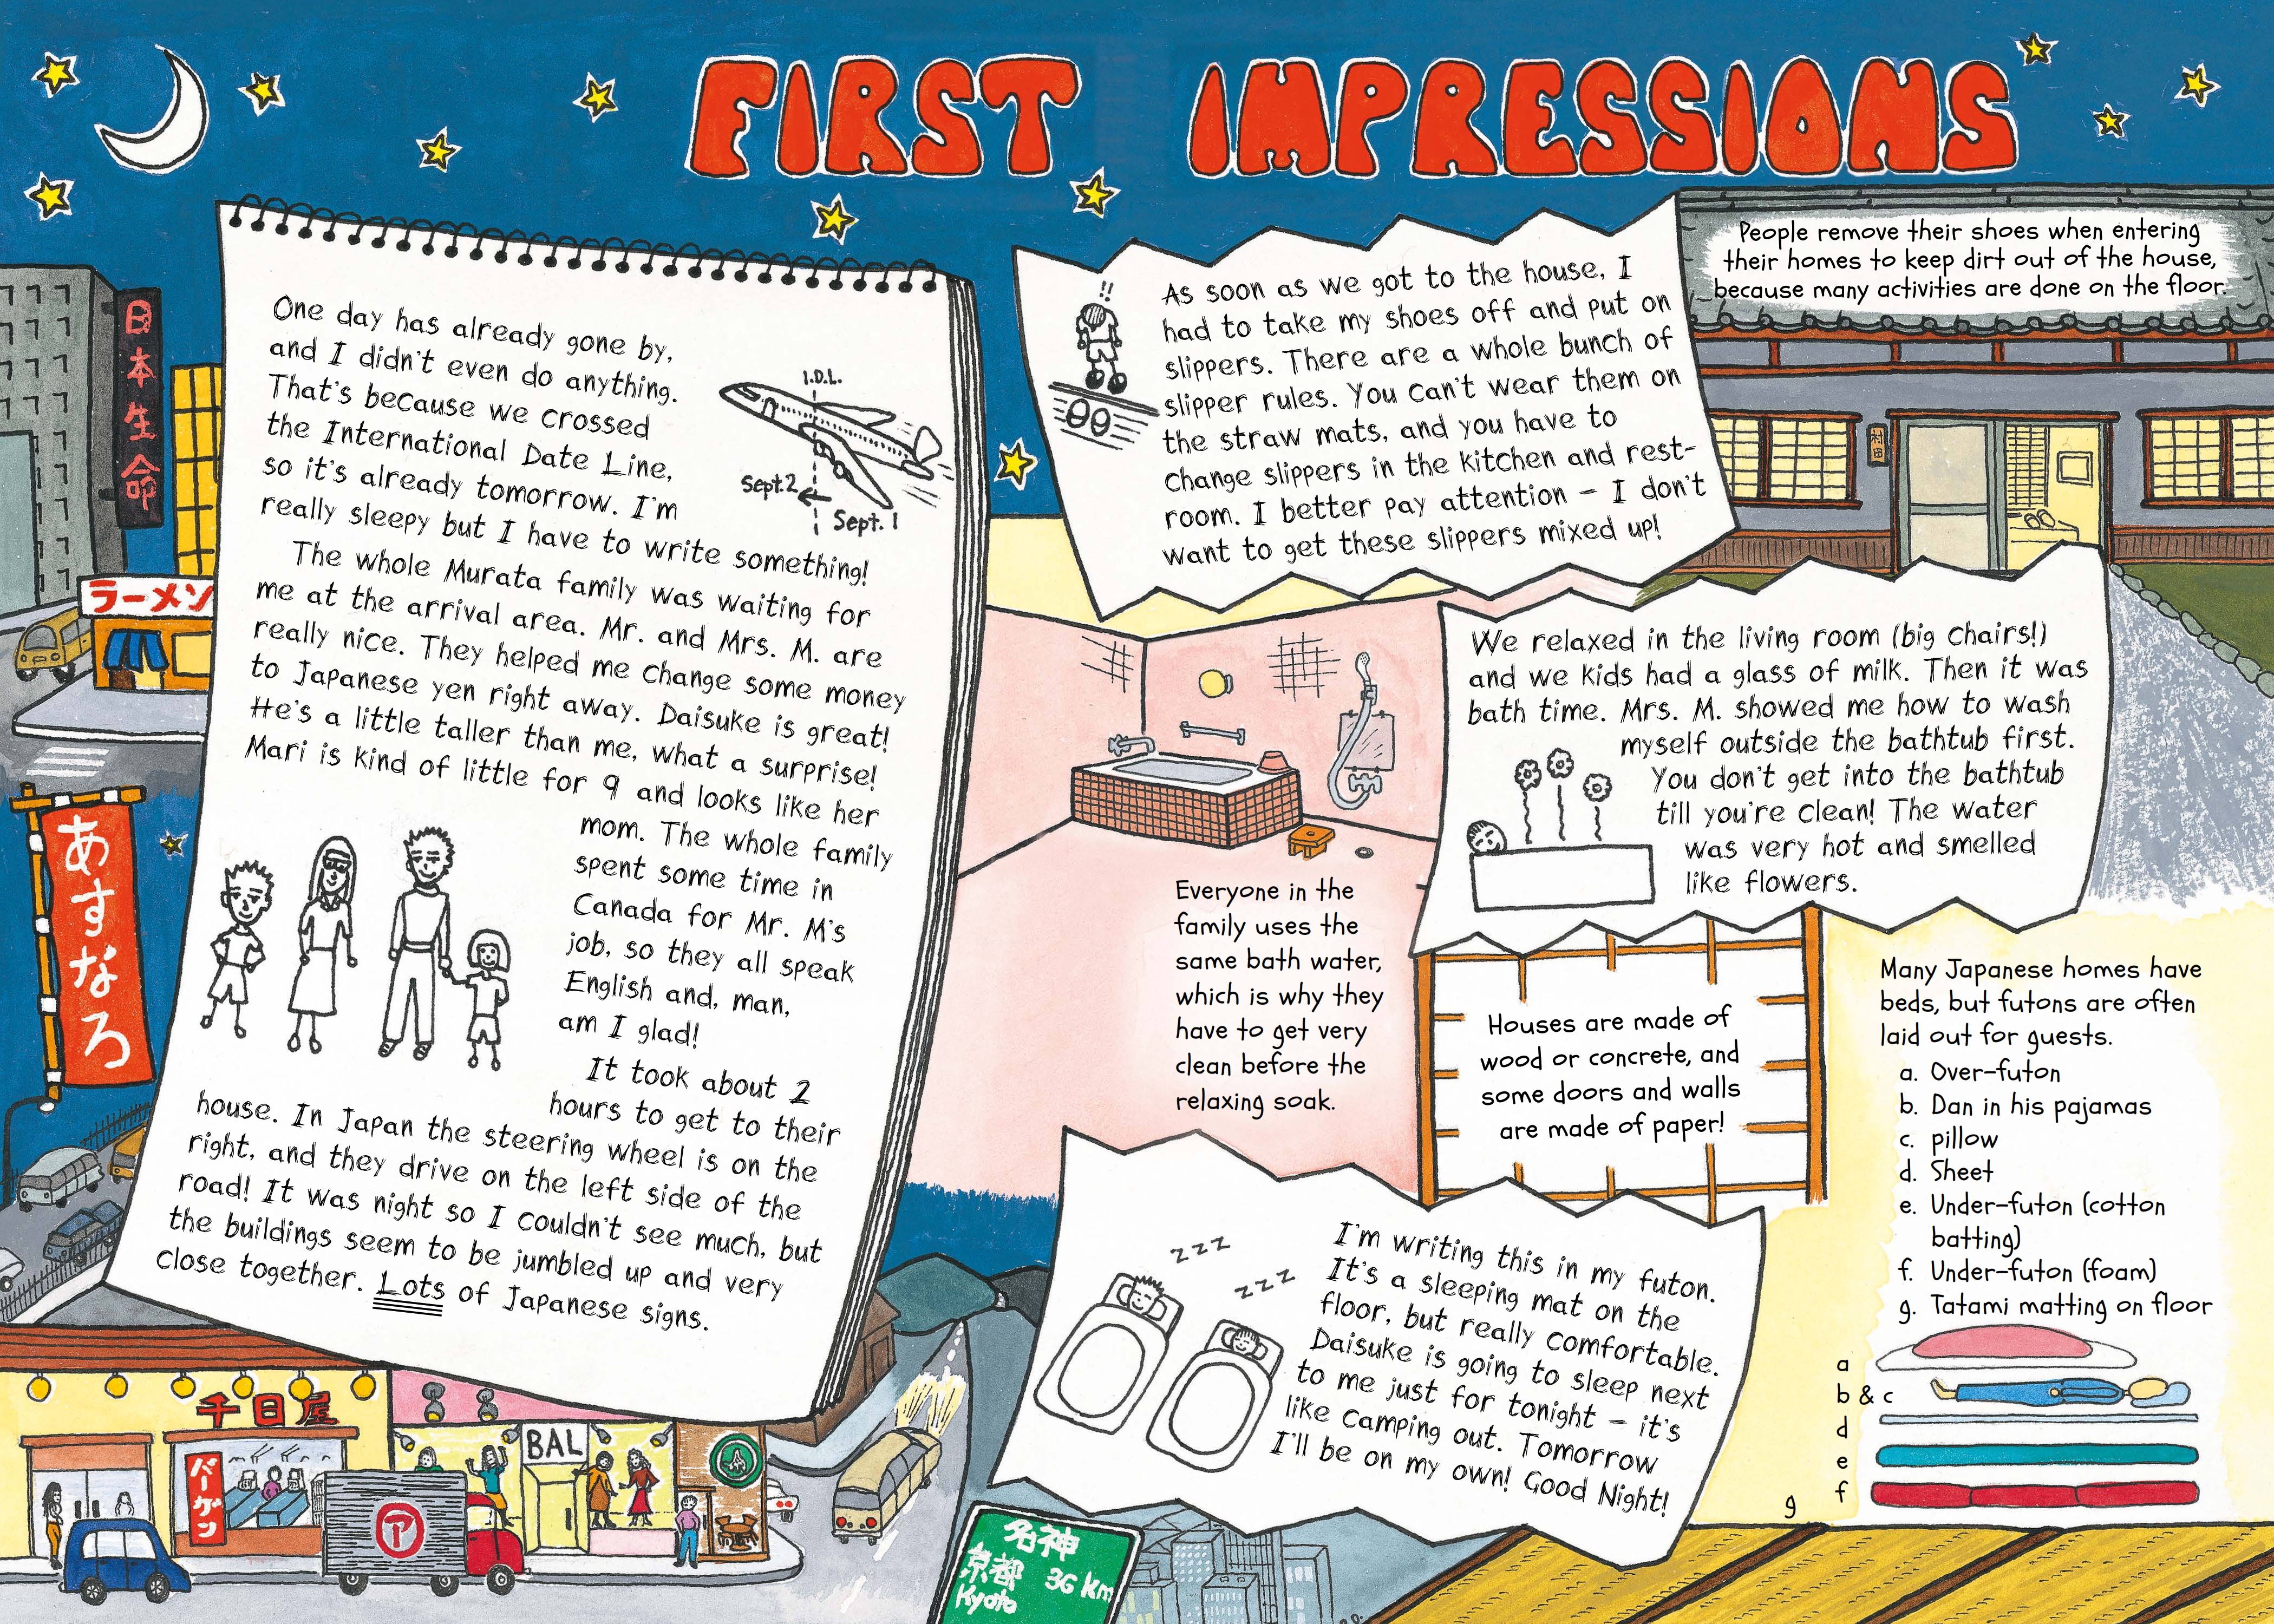 FIRST IMPRESSIONS
One day has already gone by,
and I didn't even do anything.
That's because we crossed
the International Date Line,
so it's already tomorrow. I'm
really sleepy but I have to write something!
I.D.L.
Sept. 2
Sept. 1
The whole Murata family was waiting for
me at the arrival area. Mr. and Mrs. M. are
really nice. They helped me change some money
to Japanese yen right away. Daisuke is great!
He's a little taller than me, what a surprise!
Mari is kind of little for 9 and looks like her
mom. The whole family
spent some time in
Canada for Mr. M's
job, so they all speak
English and, man,
am I glad!
It took about 2
hours to get to their
house. In Japan the steering wheel is on the
right, and they drive on the left side of the
road! It was night so I couldn't see much, but
the buildings seem to be jumbled up and very
close together. Lots of Japanese signs.
!!
As soon as we got to the house, I
had to take my shoes off and put on
slippers. There are a whole bunch of
slipper rules. You can't wear them on
the straw mats, and you have to
change slippers in the kitchen and rest-
room. I better pay attention – I don't
want to get these slippers mixed up!
People remove their shoes when entering
their homes to keep dirt out of the house,
because many activities are done on the floor.
村田
We relaxed in the living room (big chairs!)
and we kids had a glass of milk. Then it was
bath time. Mrs. M. showed me how to wash
myself outside the bathtub first.
You don't get into the bathtub
till you're clean! The water
was very hot and smelled
like flowers.
Everyone in the
family uses the
same bath water,
which is why they
have to get very
clean before the
relaxing soak.
Houses are made of
wood or concrete, and
some doors and walls
are made of paper!
Many Japanese homes have
beds, but futons are often
laid out for guests.
a. Over-futon
b. Dan in his pajamas
c. pillow
d. Sheet
e. Under-futon (cotton
batting)
f. Under-futon (foam)
g. Tatami matting on floor
a
b & c
d
e
f
g
zzz
zzz
I'm writing this in my futon.
It's a sleeping mat on the
floor, but really comfortable.
Daisuke is going to sleep next
to me just for tonight – it's
like camping out. Tomorrow
I'll be on my own! Good Night!
日本生命
ラーメン
あすなろ
千日屋
バーゲン
ア
BAL
名神
京都 36 km
Kyoto